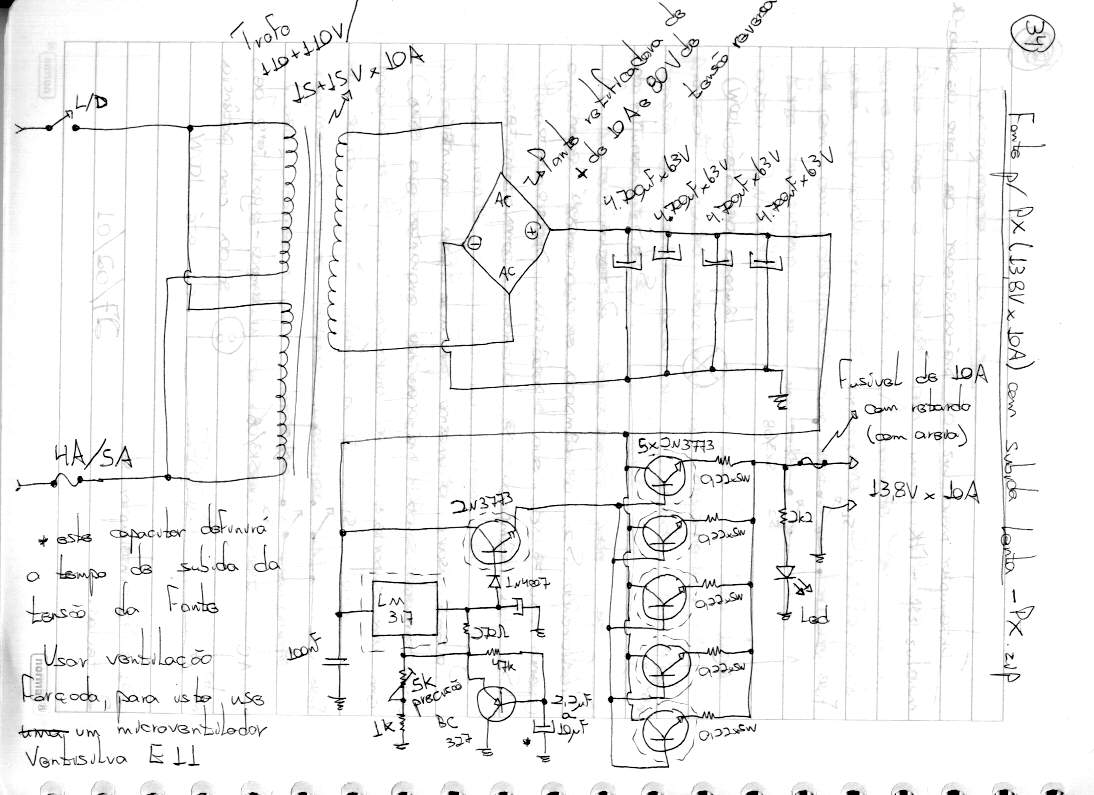 34
Fonte p/ PX (13,8V x 10A) com subida lenta - PX.zip
L/D
Trafo
110+110V/
15+15V x 10A
Ponte retificadora de
* de 10A e 80V de
tensão reversa
AC
+
-
AC
4.700µF x 63V
4.700µF x 63V
4.700µF x 63V
4.700µF x 63V
4A/5A
Fusível de 10A
com retardo
(com areia)
13,8V x 10A
5x 2N3773
0,22x5W
0,22x5W
0,22x5W
0,22x5W
0,22x5W
2k2
Led
2N3773
1N4007
LM
317
270Ω
100nF
47k
5K
precisão
1k
BC
327
2,2µF
a
10µF
*
* este capacitor definirá
o tempo de subida da
tensão da Fonte
Usar ventilação
Forçada, para isto, use
um microventilador
Ventisilva E11